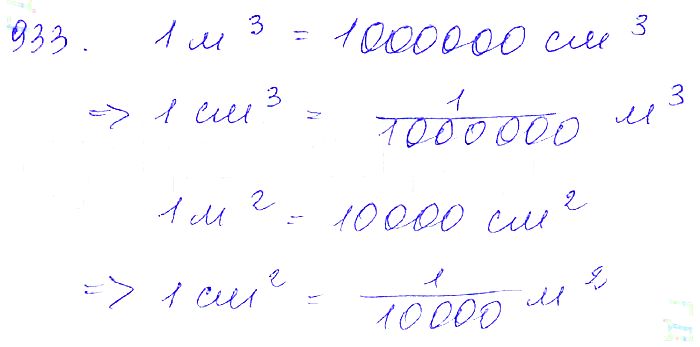 933. 1 м³ = 1000000 см³
=> 1 см³ = 1/1000000 м³
1 м² = 10000 см²
=> 1 см² = 1/10000 м²